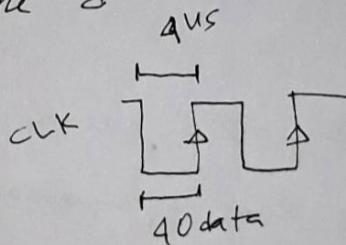 4us
CLK
40data